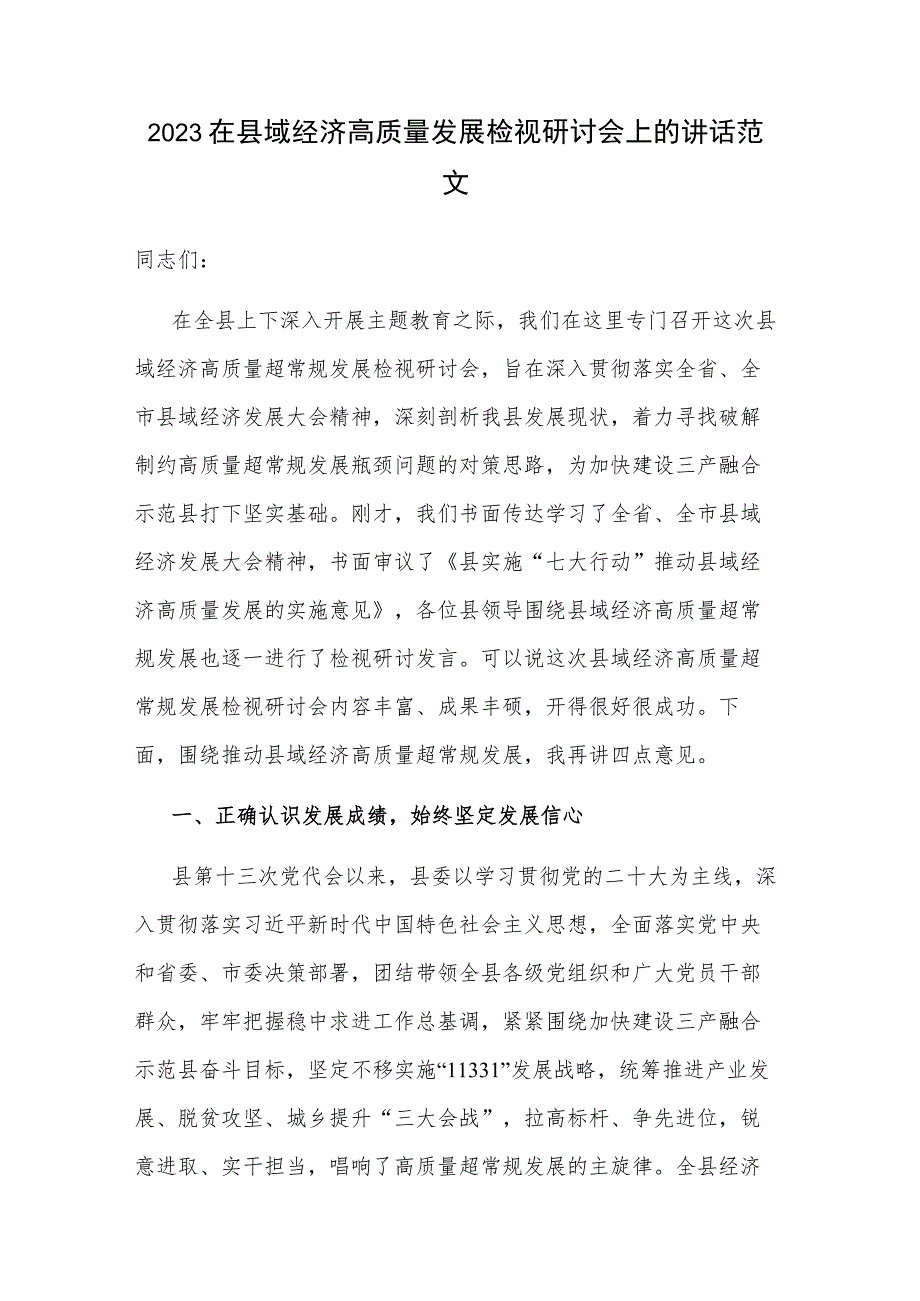 2023在县域经济高质量发展检视研讨会上的讲话范
文
同志们：
在全县上下深入开展主题教育之际，我们在这里专门召开这次县
域经济高质量超常规发展检视研讨会，旨在深入贯彻落实全省、全
市县域经济发展大会精神，深刻剖析我县发展现状，着力寻找破解
制约高质量超常规发展瓶颈问题的对策思路，为加快建设三产融合
示范县打下坚实基础。刚才，我们书面传达学习了全省、全市县域
经济发展大会精神，书面审议了《县实施“七大行动”推动县域经
济高质量发展的实施意见》，各位县领导围绕县域经济高质量超常
规发展也逐一进行了检视研讨发言。可以说这次县域经济高质量超
常规发展检视研讨会内容丰富、成果丰硕，开得很好很成功。下
面，围绕推动县域经济高质量超常规发展，我再讲四点意见。
一、正确认识发展成绩，始终坚定发展信心
县第十三次党代会以来，县委以学习贯彻党的二十大为主线，深
入贯彻落实习近平新时代中国特色社会主义思想，全面落实党中央
和省委、市委决策部署，团结带领全县各级党组织和广大党员干部
群众，牢牢把握稳中求进工作总基调，紧紧围绕加快建设三产融合
示范县奋斗目标，坚定不移实施“11331”发展战略，统筹推进产业发
展、脱贫攻坚、城乡提升“三大会战”，拉高标杆、争先进位，锐
意进取、实干担当，唱响了高质量超常规发展的主旋律。全县经济